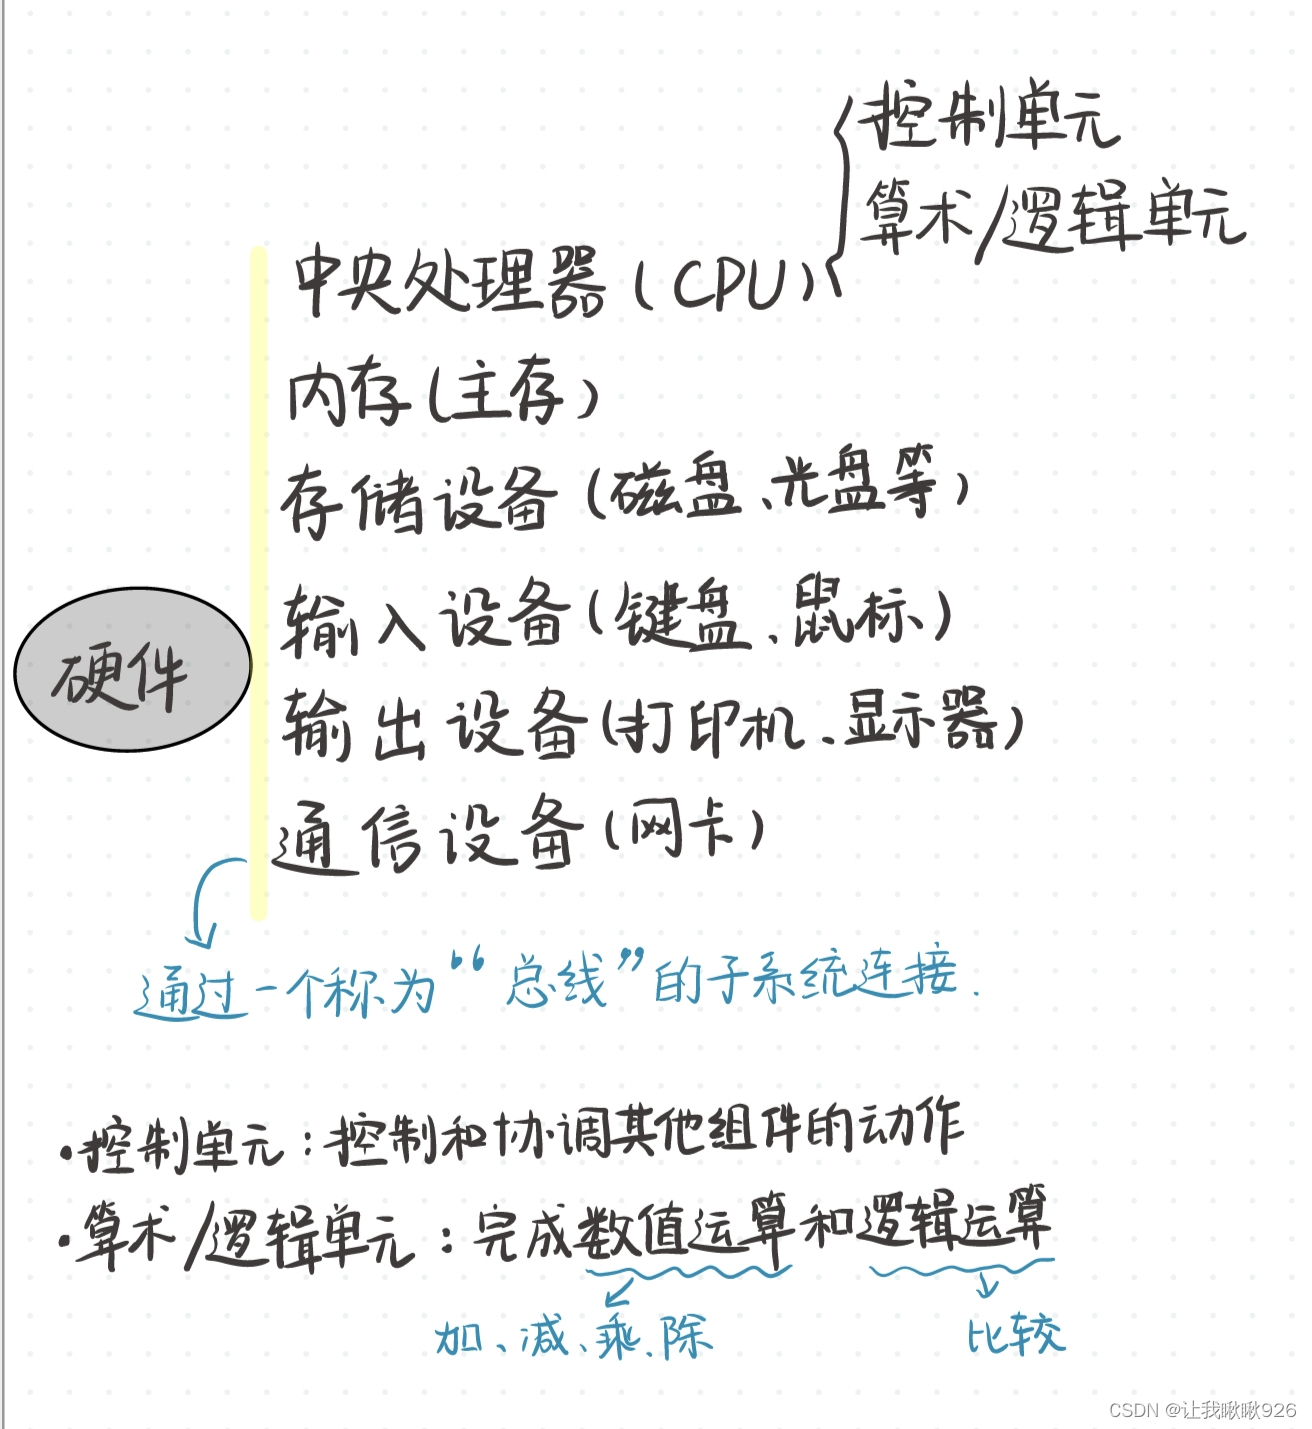 控制单元
算术/逻辑单元
中央处理器(CPU)
内存(主存)
存储设备(磁盘、光盘等)
输入设备(键盘、鼠标)
硬件
输出设备(打印机、显示器)
通信设备(网卡)
通过一个称为“总线”的子系统连接.
·控制单元:控制和协调其他组件的动作
·算术/逻辑单元:完成数值运算和逻辑运算
加、减、乘、除
比较
CSDN @让我瞅瞅926